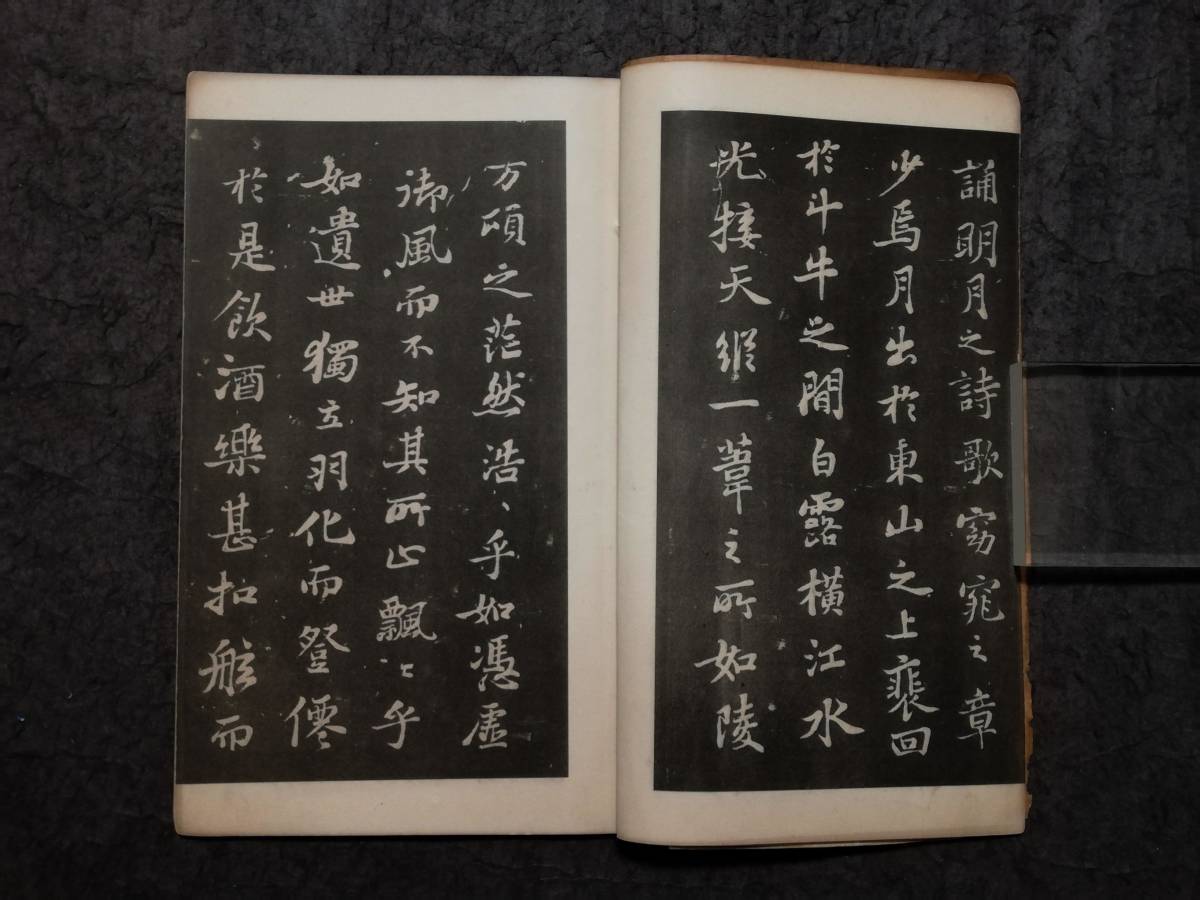 誦明月之詩歌窈窕之章
少焉月出於東山之上裴回
於斗牛之間白露橫江水
光接天縱一葦之所如陵
万頃之茫然浩〻乎如馮虛
御風而不知其所止飄〻乎
如遺世獨立羽化而登僊
於是飲酒樂甚扣舷而